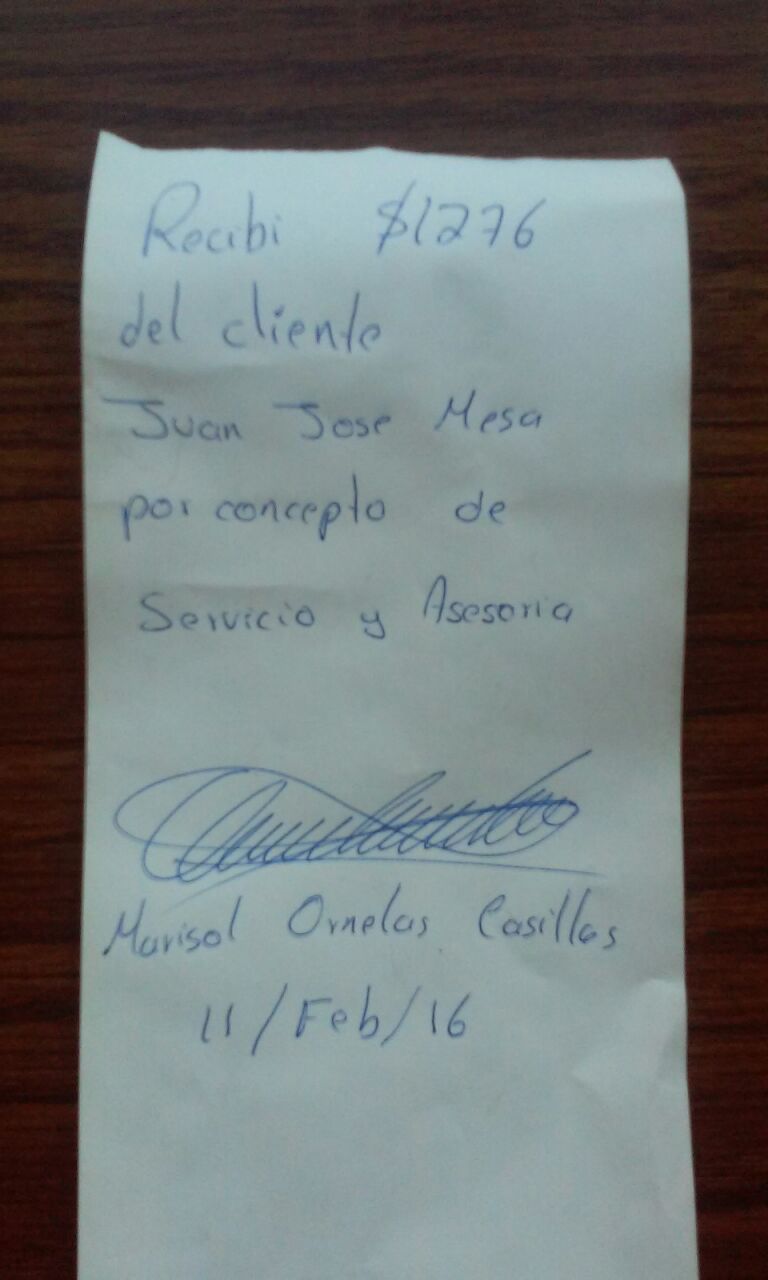 Recibi $1276
del cliente
Juan Jose Mesa
por concepto de
Servicio y Asesoria
Marisol Ornelas Casillas
11/Feb/16